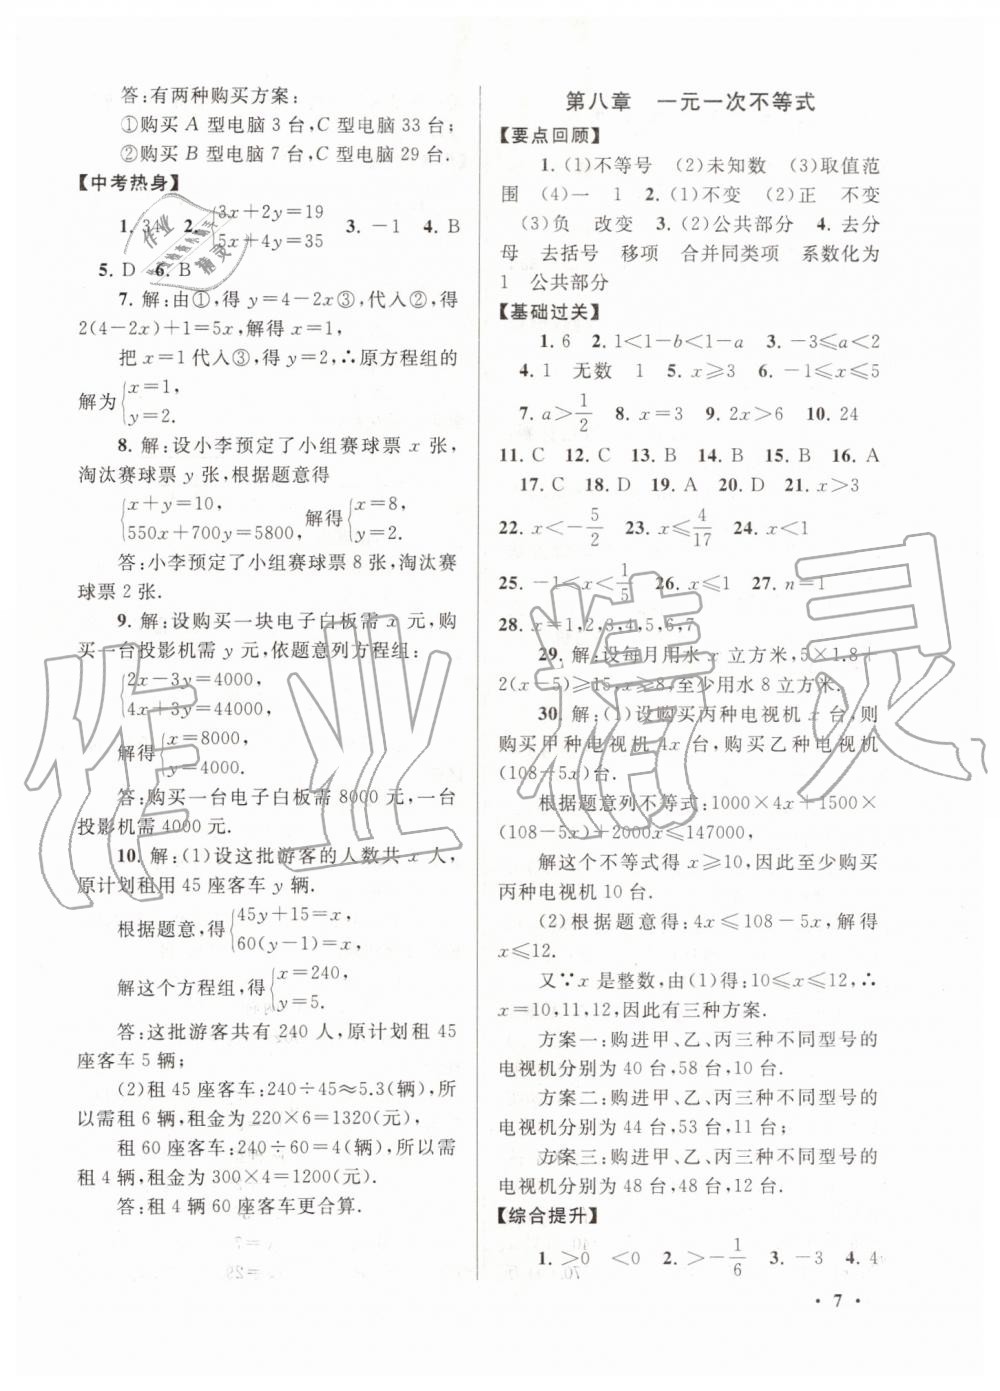 答:有两种购买方案:
①购买 A 型电脑 3 台,C 型电脑 33 台;
②购买 B 型电脑 7 台,C 型电脑 29 台.
【中考热身】
1. 34  2. {3x+2y=19  3. -1  4. B
5x+4y=35
5. D  6. B
7. 解:由①,得 y=4-2x③,代入②,得
2(4-2x)+1=5x,解得 x=1,
把 x=1 代入③,得 y=2,∴原方程组的
解为{x=1,
y=2.
8. 解:设小李预定了小组赛球票 x 张,
淘汰赛球票 y 张,根据题意得
{x+y=10,
550x+700y=5800  解得{x=8,
y=2.
答:小李预定了小组赛球票 8 张,淘汰赛
球票 2 张.
9. 解:设购买一块电子白板需 x 元,购
买一台投影机需 y 元,依题意列方程组:
{2x-3y=4000,
4x+3y=44000,
解得{x=8000,
y=4000.
答:购买一台电子白板需 8000 元,一台
投影机需 4000 元.
10. 解:(1)设这批游客的人数共 x 人,
原计划租用 45 座客车 y 辆.
根据题意,得{45y+15=x,
60(y-1)=x,
解这个方程组,得{x=240,
y=5.
答:这批游客共有 240 人,原计划租 45
座客车 5 辆;
(2)租 45 座客车:240÷45≈5.3(辆),所
以需租 6 辆,租金为 220×6=1320(元),
租 60 座客车:240÷60=4(辆),所以需
租 4 辆,租金为 300×4=1200(元).
答:租 4 辆 60 座客车更合算.
第八章  一元一次不等式
【要点回顾】
1. (1)不等号  (2)未知数  (3)取值范
围  (4)一  1  2. (1)不变  (2)正  不变
(3)负  改变  3. (2)公共部分  4. 去分
母  去括号  移项  合并同类项  系数化为
1  公共部分
【基础过关】
1. 6  2. 1<1-b<1-a  3. -3≤a<2
4. 1  无数  1  5. x≥3  6. -1≤x≤5
7. a>1/2  8. x=3  9. 2x>6  10. 24
11. C  12. C  13. B  14. B  15. B  16. A
17. C  18. D  19. A  20. D  21. x>3
22. x<-5/2  23. x≤4/17  24. x<1
25. -1≤x<1/5  26. x≤1  27. n=1
28. x=1,2,3,4,5,6,7
29. 解:设每月用水 x 立方米,5×1.8+
2(x-5)≥15,x≥8,至少用水 8 立方米.
30. 解:(1)设购买丙种电视机 x 台,则
购买甲种电视机 4x 台,购买乙种电视机
(108-5x)台.
根据题意列不等式:1000×4x+1500×
(108-5x)+2000x≤147000,
解这个不等式得 x≥10,因此至少购买
丙种电视机 10 台.
(2)根据题意得:4x≤108-5x,解得
x≤12.
又∵x 是整数,由(1)得:10≤x≤12,∴
x=10,11,12,因此有三种方案.
方案一:购进甲、乙、丙三种不同型号的
电视机分别为 40 台,58 台,10 台.
方案二:购进甲、乙、丙三种不同型号的
电视机分别为 44 台,53 台,11 台;
方案三:购进甲、乙、丙三种不同型号的
电视机分别为 48 台,48 台,12 台.
【综合提升】
1. >0  <0  2. >-1/6  3. -3  4. 4
· 7 ·
作业精灵